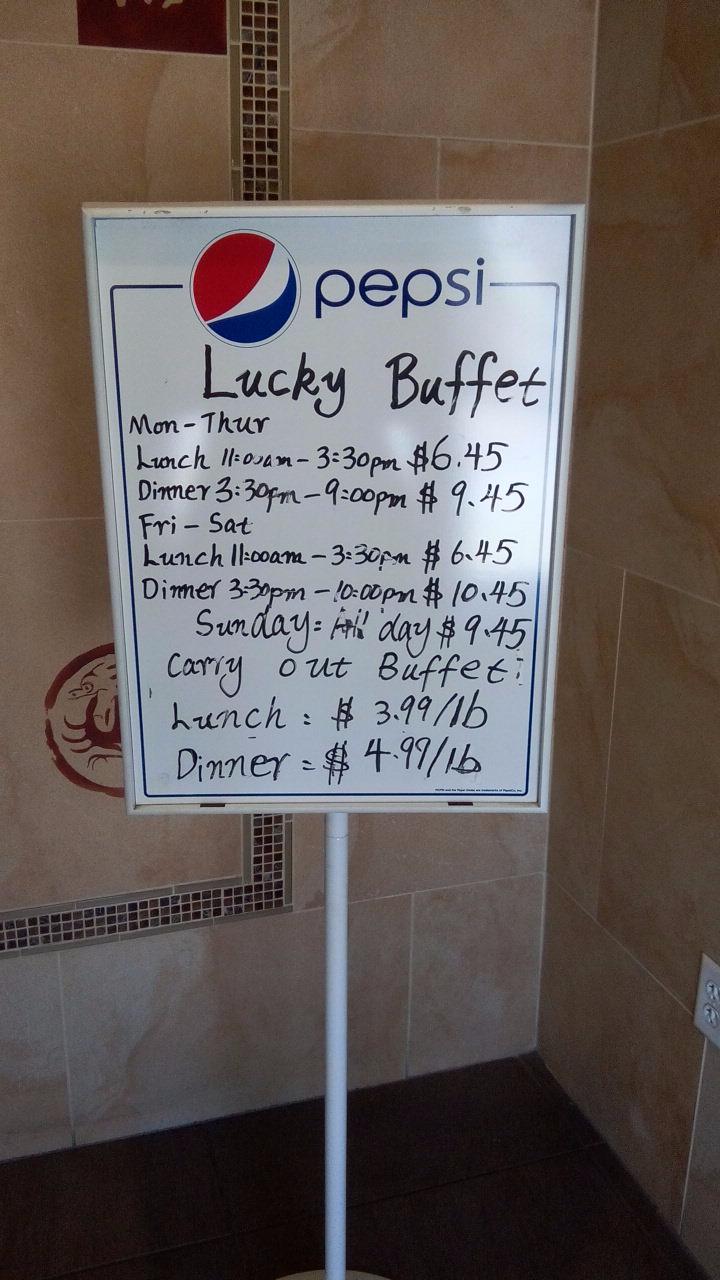 pepsi
Lucky Buffet
Mon-Thur
Lunch 11:00am-3:30pm $6.45
Dinner 3:30pm-9:00pm $9.45
Fri-Sat
Lunch 11:00am-3:30pm $6.45
Dinner 3:30pm-10:00pm $10.45
Sunday: All day $9.45
Carry out Buffet:
Lunch: $3.99/lb
Dinner: $4.99/lb